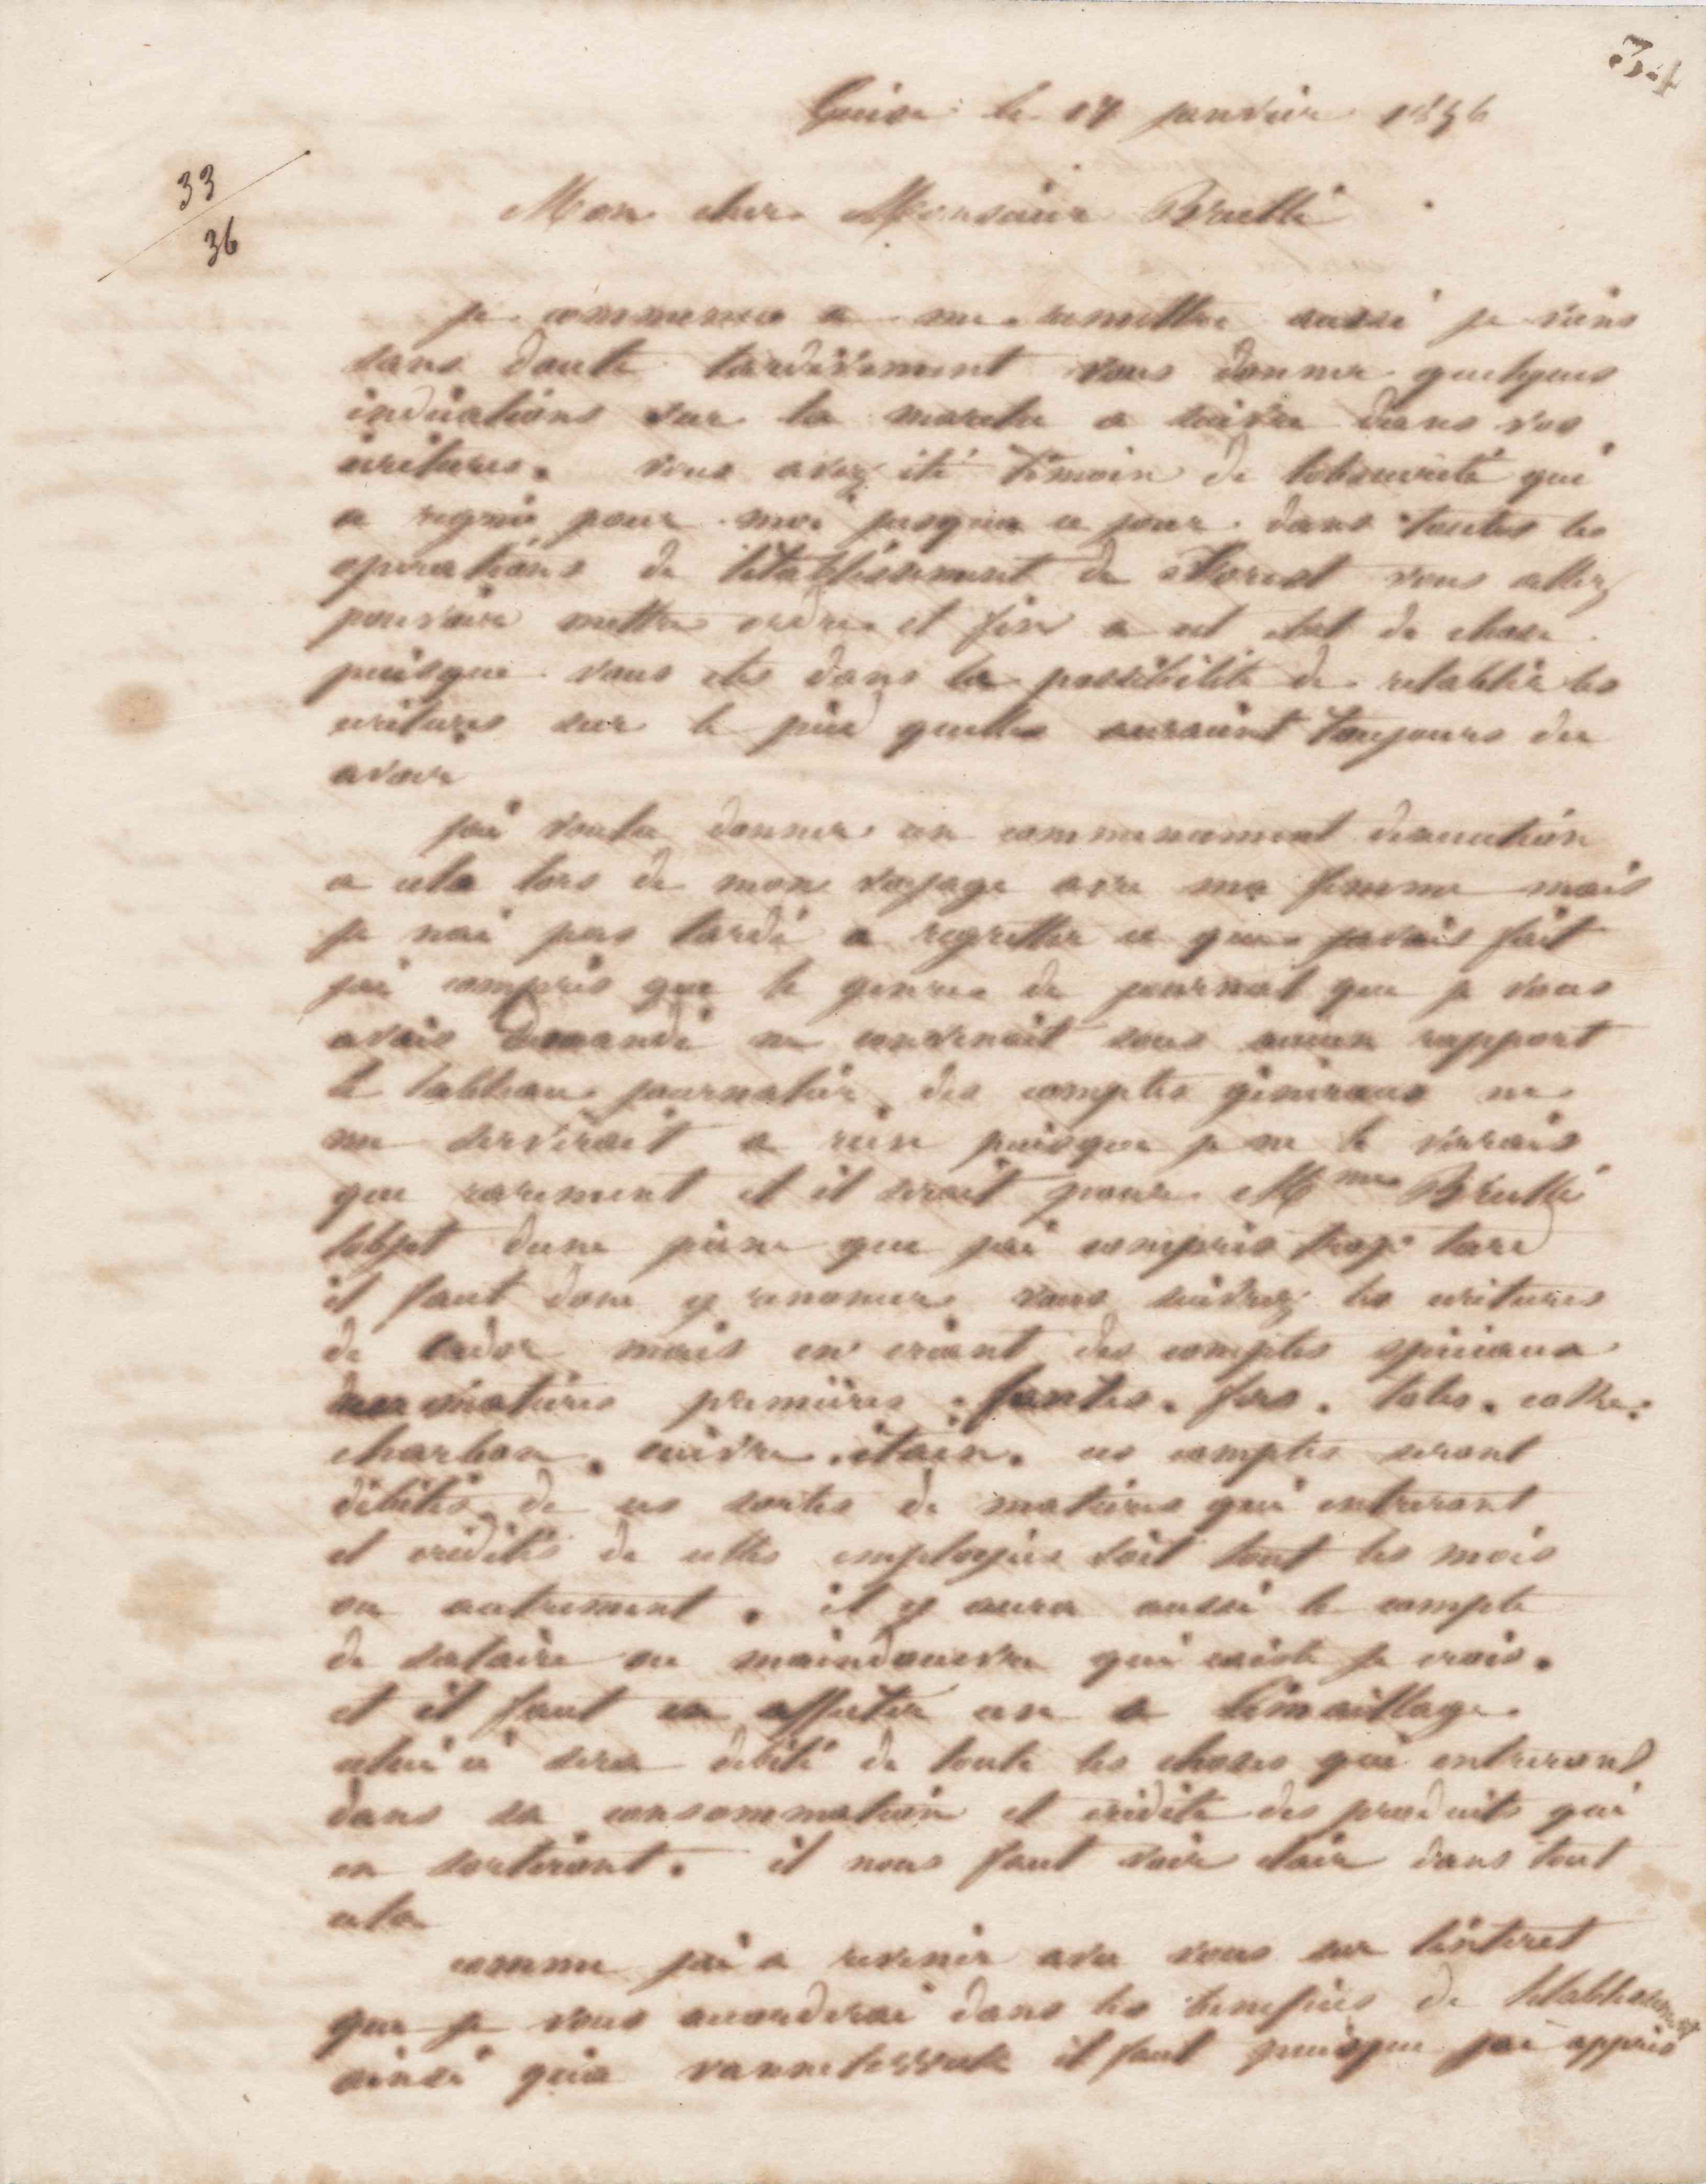 34
Guise le 17 janvier 1856
33
36
Mon cher Monsieur Brullé
je commence a me remettre aussi je viens
sans doute tardivement vous donner quelques
indications sur la marche a suivre dans vos
ecritures. vous avez été témoin de lobscurité qui
a regné pour moi jusqua ce jour dans toutes les
operations de létablissement de Forest vous allez
pouvoir mettre ordre et fin a cet etat de chose
puisque vous etes dans la possibilité de retablir les
ecritures sur le pied quelles auraient toujours du
avoir
jai voulu donner un commencement dexecution
a cela lors de mon voyage avec ma femme mais
je nai pas tardé a regretter ce que javais fait
jai compris que le genre de journal que je vous
avais demandé ne convenait sous aucun rapport
le tableau journalier des comptes généraux ne
me servirait a rien puisque je ne le verrais
que rarement et il serait pour Mme Brullé
lobjet dune peine que jai compris trop tard
il faut donc y renoncer vous suivrez les ecritures
de Cador mais en créant des comptes spéciaux
aux matières premières : fontes. fers. toles. coke.
charbon. cuivre. étain. ces comptes seront
débités de ces sortes de matières qui entreront
et crédités de celles employées soit tout les mois
ou autrement. il y aura aussi le compte
de salaire ou maindoeuvre qui existe je crois.
et il faut en affecter un a lémaillage.
celui ci sera débité de toute les choses qui entreront
dans sa consommation et crédité des produits qui
en sortiront. il nous faut voir clair dans tout
cela
comme jai a revenir avec vous sur lintéret
que je vous accorderai dans les bénéfices de létablissement
ainsi qua il faut puisque jai appris